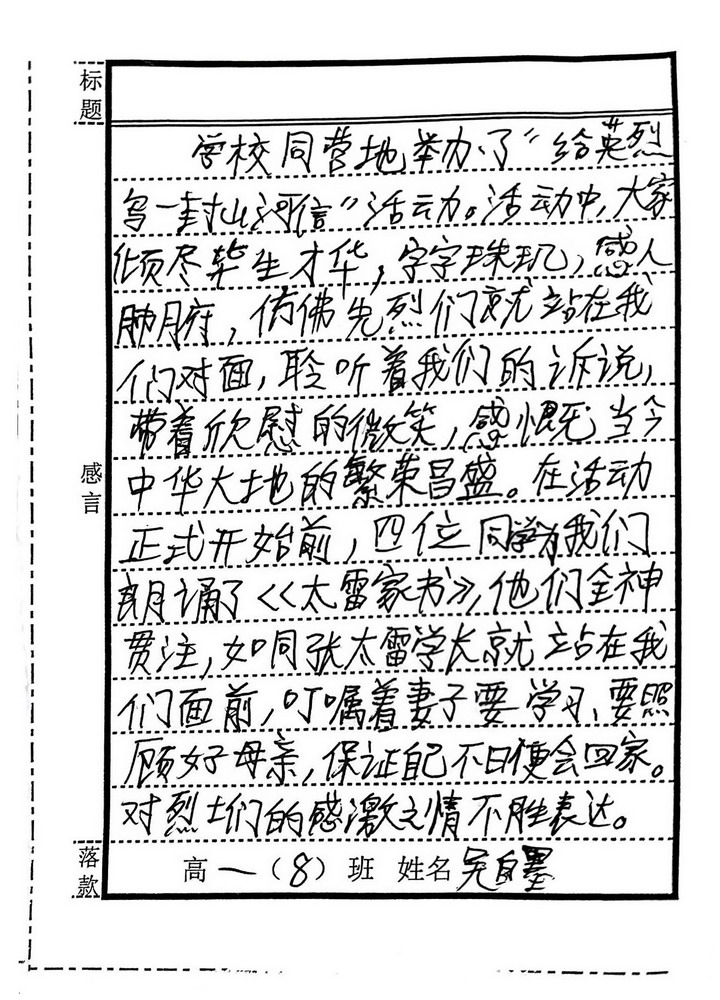 标题
学校同营地举办了“给英烈
写一封山河信”活动。活动中，大家
倾尽毕生才华，字字珠玑，感人
肺腑，仿佛先烈们就站在我
们对面，聆听着我们的诉说，
带着欣慰的微笑，感慨当今
中华大地的繁荣昌盛。在活动
正式开始前，四位同学为我们
朗诵了《太雷家书》，他们全神
贯注，如同张太雷学长就站在我
们面前，叮嘱着妻子要学习、要照
顾好母亲，保证自己不日便会回家。
对烈士们的感激之情不胜表达。
感言
落款
高一（8）班 姓名 吴自墨